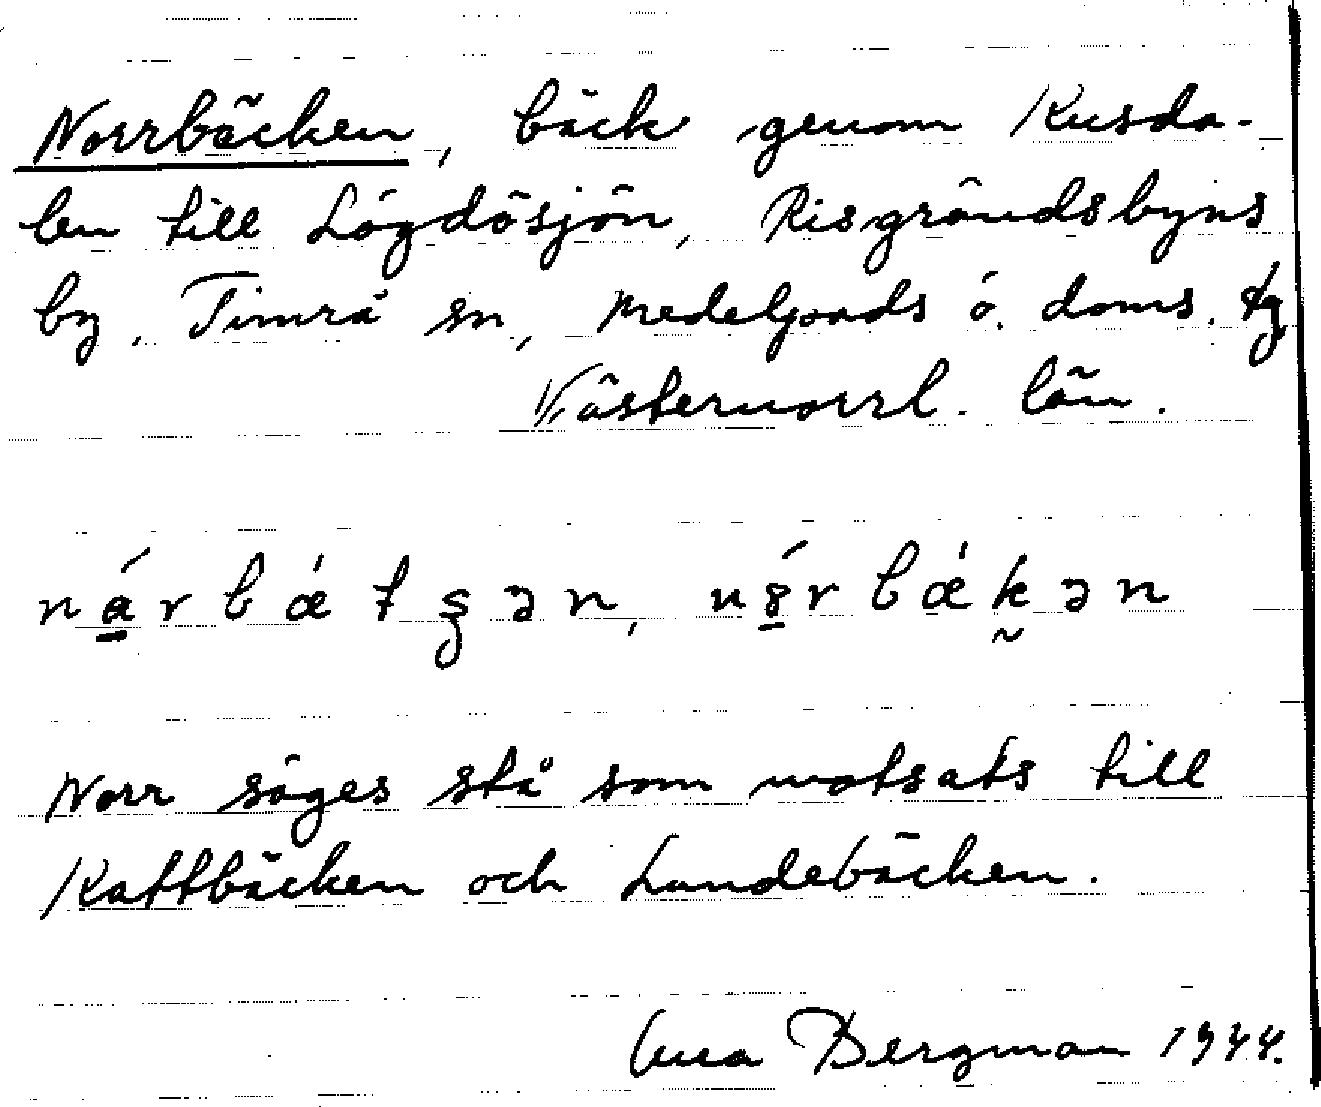 Norrbäcken, bäck genom Kusda-
len till Lögdösjön, Risgrändsbyns
by, Timrå sn, Medelpads ö. doms. tg
Västernorrl. län.
nárbǽtʂən, nɤ́rbǽkən
Norr säges stå som motsats till
Kattbäcken och Landebäcken.
Bergman 1944.